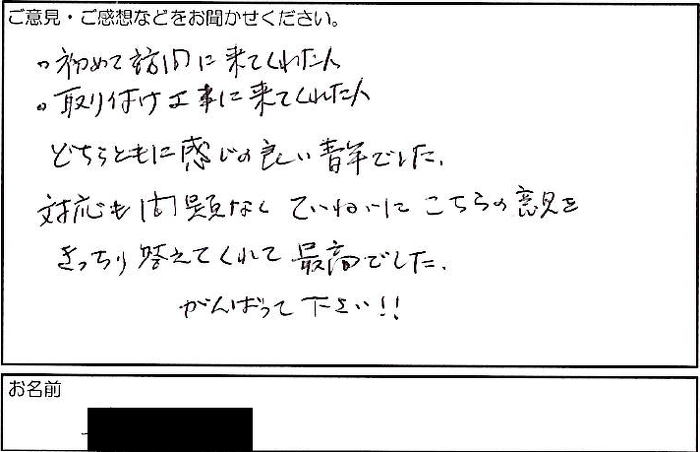 ご意見・ご感想などをお聞かせください。
。初めて訪問に来てくれた人
。取り付け工事に来てくれた人
どちらともに感じの良い青年でした。
対応も問題なく ていねいに こちらの意見を
きっちり答えてくれて 最高でした。
がんばって下さい!!
お名前